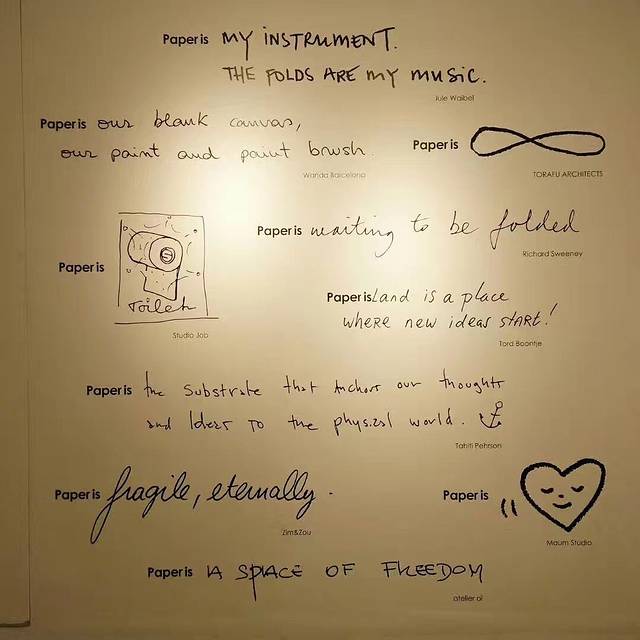 Paper is MY INSTRUMENT.
THE FOLDS ARE MY MUSIC.
Jule Waibel
Paper is our blank canvas,
our paint and paint brush.
Wanda Barcelona
Paper is
TORAFU ARCHITECTS
Paper is waiting to be folded
Richard Sweeney
Paper is
Toilet
Studio Job
Paper is land is a place
where new ideas START!
Tord Boontje
Paper is the Substrate that Anchors our thoughts
and Ideas To the physical world.
Tahiti Pehrson
Paper is fragile, eternally.
Zim&Zou
Paper is
Maum Studio
Paper is A SPACE OF FREEDOM
atelier oï